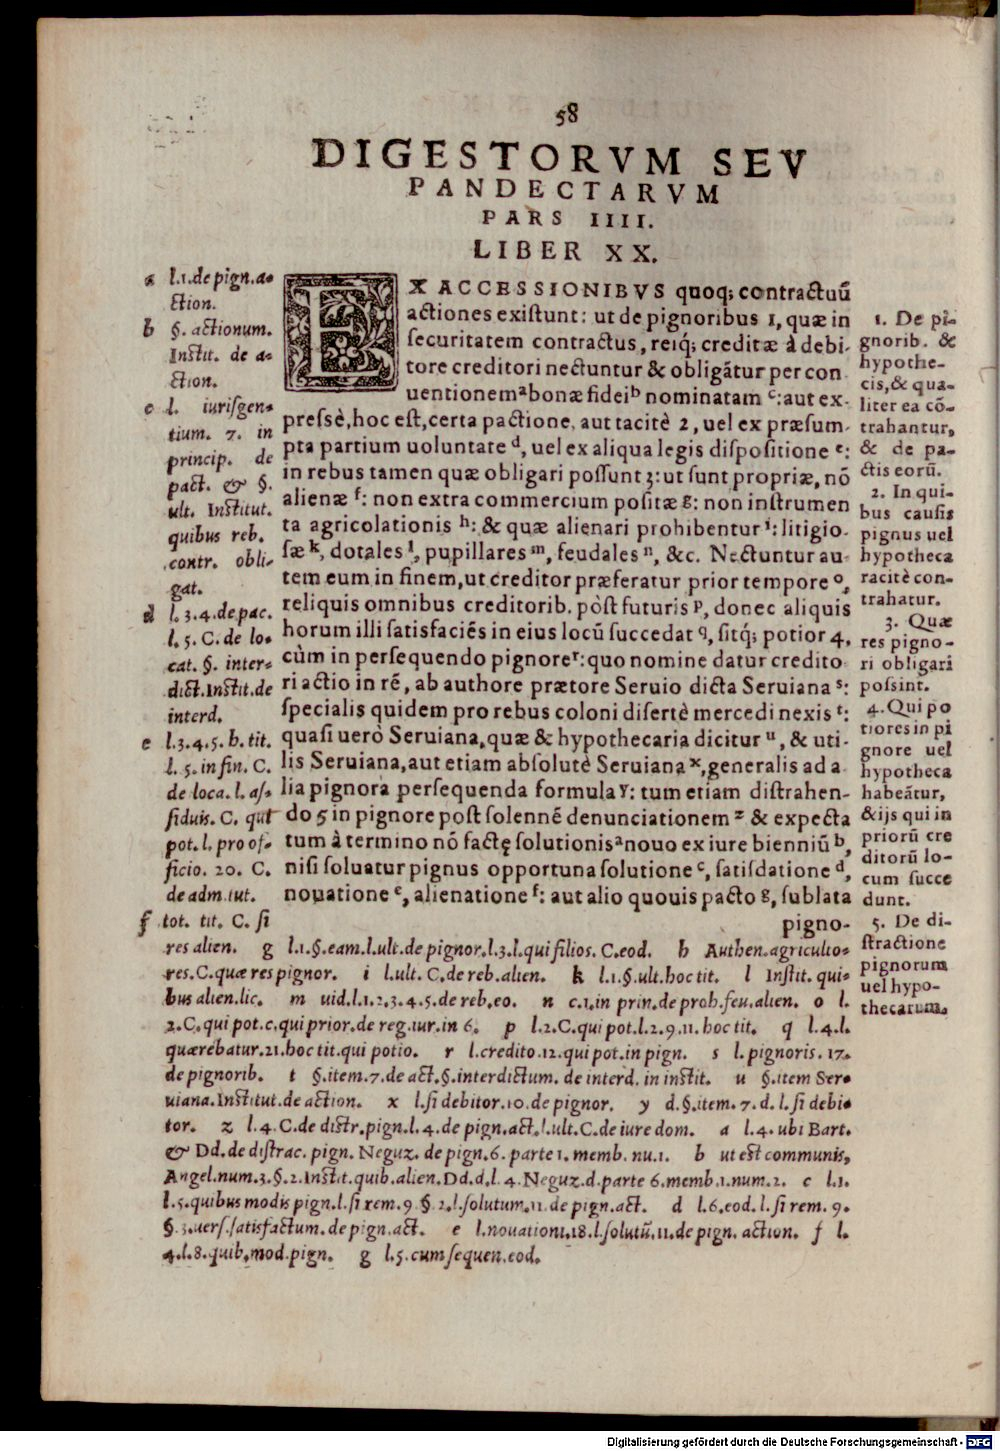 58
DIGESTORVM SEV
PANDECTARVM
PARS IIII.
LIBER XX.
EX ACCESSIONIBVS quoq; contractuū
actiones existunt: ut de pignoribus 1, quæ in
securitatem contractus, reiq; creditæ à debi-
tore creditori nectuntur & obligātur per con
uentionem a bonæ fidei b nominatam c: aut ex-
pressè, hoc est, certa pactione, aut tacitè 2, uel ex præsum-
pta partium uoluntate d, uel ex aliqua legis dispositione e:
in rebus tamen quæ obligari possunt 3: ut sunt propriæ, nō
alienæ f: non extra commercium positæ g: non instrumen
ta agricolationis h: & quæ alienari prohibentur i: litigio-
sæ k, dotales l, pupillares m, feudales n, &c. Nectuntur au-
tem eum in finem, ut creditor præferatur prior tempore o,
reliquis omnibus creditorib. pòst futuris p, donec aliquis
horum illi satisfaciēs in eius locū succedat q, sitq; potior 4,
cùm in persequendo pignore r: quo nomine datur credito
ri actio in rē, ab authore prætore Seruio dicta Seruiana s:
specialis quidem pro rebus coloni disertè mercedi nexis t:
quasi uerò Seruiana, quæ & hypothecaria dicitur u, & uti-
lis Seruiana, aut etiam absolutè Seruiana x, generalis ad a
lia pignora persequenda formula y: tum etiam distrahen-
do 5 in pignore post solennē denunciationem z & expecta
tum à termino nō factę solutionis a nouo ex iure bienniū b,
nisi soluatur pignus opportuna solutione c, satisdatione d,
nouatione e, alienatione f: aut alio quouis pacto g, sublata
pigno-
a l.1. de pign. a-
ction.
b §. actionum.
Instit. de a-
ction.
c l. iurisgen-
tium. 7. in
princip. de
pact. & §.
ult. Institut.
quibus reb.
contr. obli-
gat.
d l. 3.4. de pac.
l. 5. C. de lo-
cat. §. inter-
dict. Instit. de
interd.
e l.3.4.5. h. tit.
l. 5. in fin. C.
de loca. l. as-
siduis. C. qui
pot. l. pro of-
ficio. 20. C.
de adm. tut.
f tot. tit. C. si
res alien. g l.1.§.eam.l.ult.de pignor.l.3.l.qui filios. C.eod. h Authen.agricultio-
res.C.quæ res pignor. i l.ult. C.de reb.alien. k l.1.§.ult.hoc tit. l Instit. qui-
bus alien.lic. m uid.l.1.2.3.4.5.de reb.eo. n c.1.in prin.de proh.feu.alien. o l.
2.C.qui pot.c.qui prior.de reg.iur.in 6. p l.2.C.qui pot.l.2.9.11.hoc tit. q l.4.l.
quærebatur.21.hoc tit.qui potio. r l.credito.12.qui pot.in pign. s l.pignoris.17.
de pignorib. t §.item.7.de act.§.interdictum. de interd. in instit. u §.item Ser-
uiana.Institut.de action. x l.si debitor.10.de pignor. y d.§.item.7.d.l.si debi-
tor. z l.4.C.de distr.pign.l.4.de pign.act.l.ult.C.de iure dom. a l.4.ubi Bart.
& Dd.de distrac. pign. Neguz. de pign.6. parte 1. memb. nu.1. b ut est communis,
Angel.num.3.§.2.Instit.quib.alien.Dd.d.l.4.Neguz.d.parte 6.memb.1.num.2. c l.1.
l.5.quibus modis pign.l.si rem.9.§.2.l.solutum.11.de pign.act. d l.6.eod.l.si rem.9.
§.3.uers.satisfactum.de pign.act. e l.nouationi.18.l.solutū.11.de pign. action. f l.
4.l.8.quib.mod.pign. g l.5.cum sequen.eod.
1. De pi-
gnorib. &
hypothe-
cis, & qua-
liter ea cō-
trahantur,
& de pa-
ctis eorū.
2. In qui-
bus causis
pignus uel
hypotheca
tacitè con-
trahatur.
3. Quæ
res pigno-
ri obligari
possint.
4. Qui po
tiores in pi
gnore uel
hypotheca
habeātur,
& ijs qui in
priorū cre
ditorū lo-
cum succe
dunt.
5. De di-
stractione
pignorum
uel hypo-
thecarum.
Digitalisierung gefördert durch die Deutsche Forschungsgemeinschaft - DFG